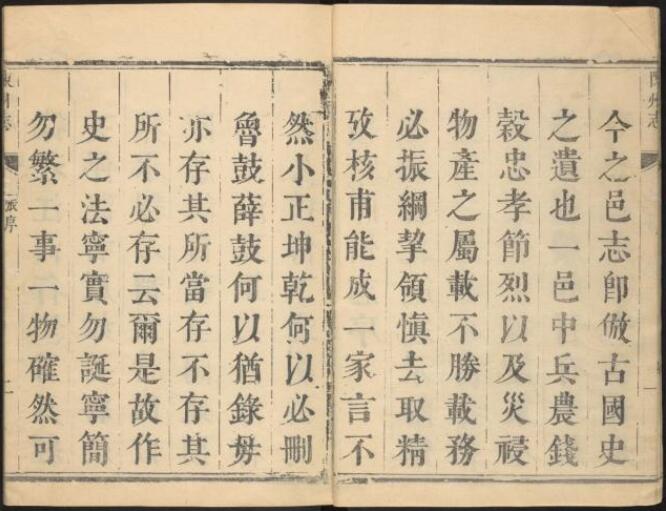 今之邑志卽倣古國史
之遺也一邑中兵農錢
穀忠孝節烈以及災祲
物產之屬載不勝載務
必振綱挈領愼去取精
攷核甫能成一家言不
然小正坤乾何以必刪
魯鼓薛鼓何以猶錄毋
亦存其所當存不存其
所不必存云爾是故作
史之法寧實勿誕寧簡
勿繁一事一物確然可
州志
序
一